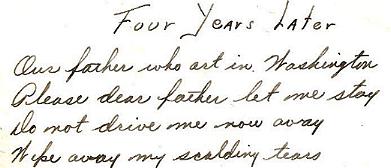 Four Years Later
Our father who art in Washington
Please dear father let me stay
Do not drive me now away
Wipe away my scalding tears